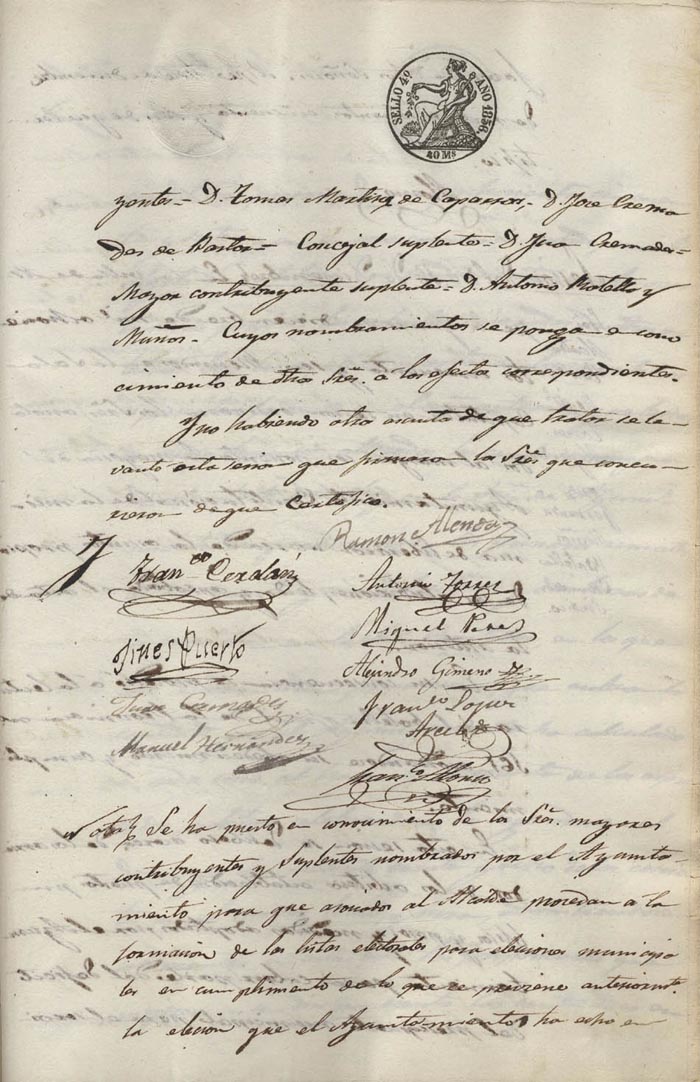 SELLO 4º AÑO 1858.
40 Ms
yentes= D. Tomas Martinez de Caparros,- D. Jose Crema
des de Pastor= Concejal suplente= D. Jua Cremades=
Mayor contribuyente suplente= D. Antonio Botella y
Muños. Cuyos nombramientos se ponga en cono
cimiento de dtos Sres. a los efectos correspondientes.
Y no habiendo otro asunto de que tratar se le-
vanto esta sesion que firmaron los Sres que concu-
rrieron de que Certifico.
Ramon Alenda
Franco Cerdán
Antonio Torres
Miguel Perez
Jines Puerto
Alejandro Gimeno
Juan Cremades
Franco Lopez
Manuel Hernandez
Juan Alonso
Nota Se ha puesto en conocimiento de los Sres. mayores
contribuyentes y suplentes nombrados por el Ayunta-
miento para que asociados al Alcalde procedan a la
formacion de las listas electorales para elecciones municipa
les en cumplimiento de lo que se previene anteriormte.
la elecion que el Ayuntamiento ha echo en